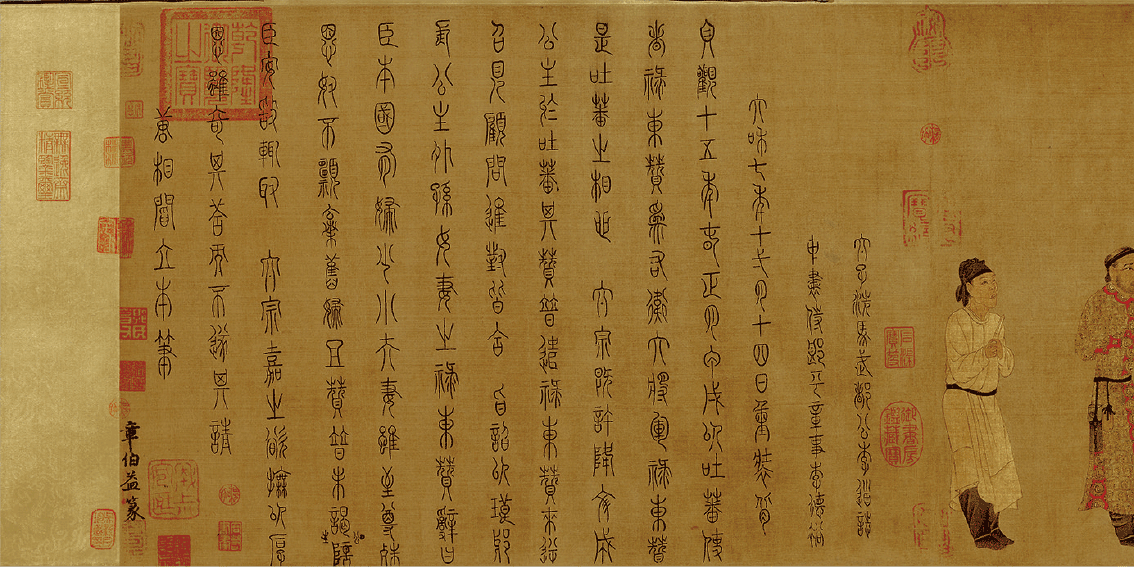 太子洗馬武都公李道誌
中書侍郎平章事李德裕
太和七年十一月十四日重裝背
貞觀十五年春正月甲戌以吐蕃使
者祿東贊為右衛大將軍祿東贊
是吐蕃之相也 太宗既許降文成
公主於吐蕃其贊普遣祿東贊來逆
召見顧問進對皆合 旨詔以琅琊
長公主外孫女妻之祿東贊辭曰
臣本國有婦少小夫妻雖至尊殊
恩奴不願棄舊婦且贊普未謁公主陪
臣安敢輒取 太宗嘉之欲撫以厚
恩雖奇其答而不遂其請
唐相閻立本筆
章伯益篆